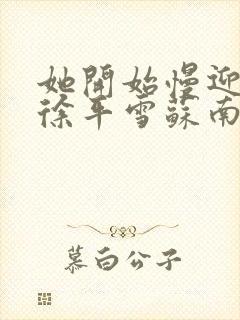 她開始慢迎
徐平雪蘇南
慕白公子